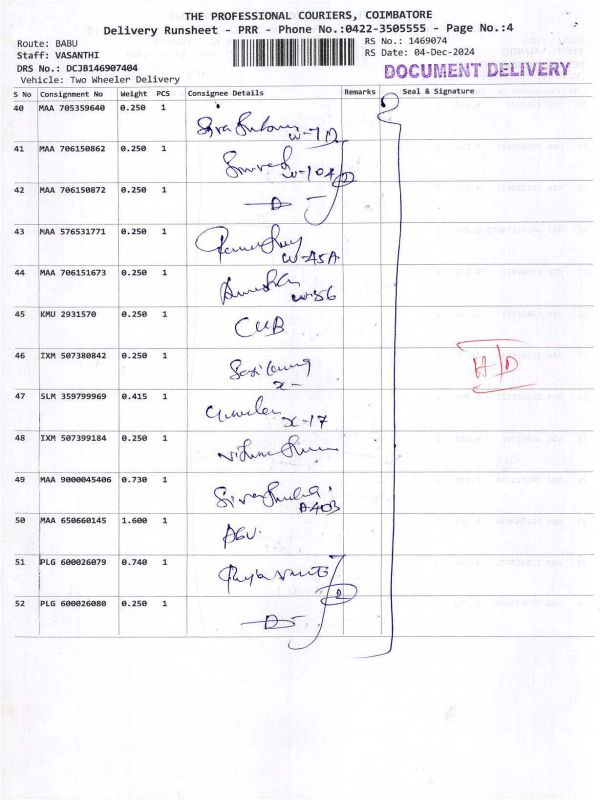 THE PROFESSIONAL COURIERS, COIMBATORE
Delivery Runsheet - PRR - Phone No.:0422-3505555 - Page No.:4
Route: BABU
RS No.: 1469074
Staff: VASANTHI
RS Date: 04-Dec-2024
DRS No.: DCJB146907404
DOCUMENT DELIVERY
Vehicle: Two Wheeler Delivery
S No Consignment No Weight PCS Consignee Details Remarks Seal & Signature
40 MAA 705359640 0.250 1
W-7D
41 MAA 706150862 0.250 1
W-104
2
42 MAA 706150872 0.250 1
43 MAA 576531771 0.250 1
W-45A
44 MAA 706151673 0.250 1
W-56
45 KMU 2931570 0.250 1
CUB
46 IXM 507380842 0.250 1
X-
H/D
47 SLM 359799969 0.415 1
X-17
48 IXM 507399184 0.250 1
49 MAA 9000045406 0.730 1
A403
50 MAA 650660145 1.600 1
51 PLG 600026079 0.740 1
2
52 PLG 600026080 0.250 1